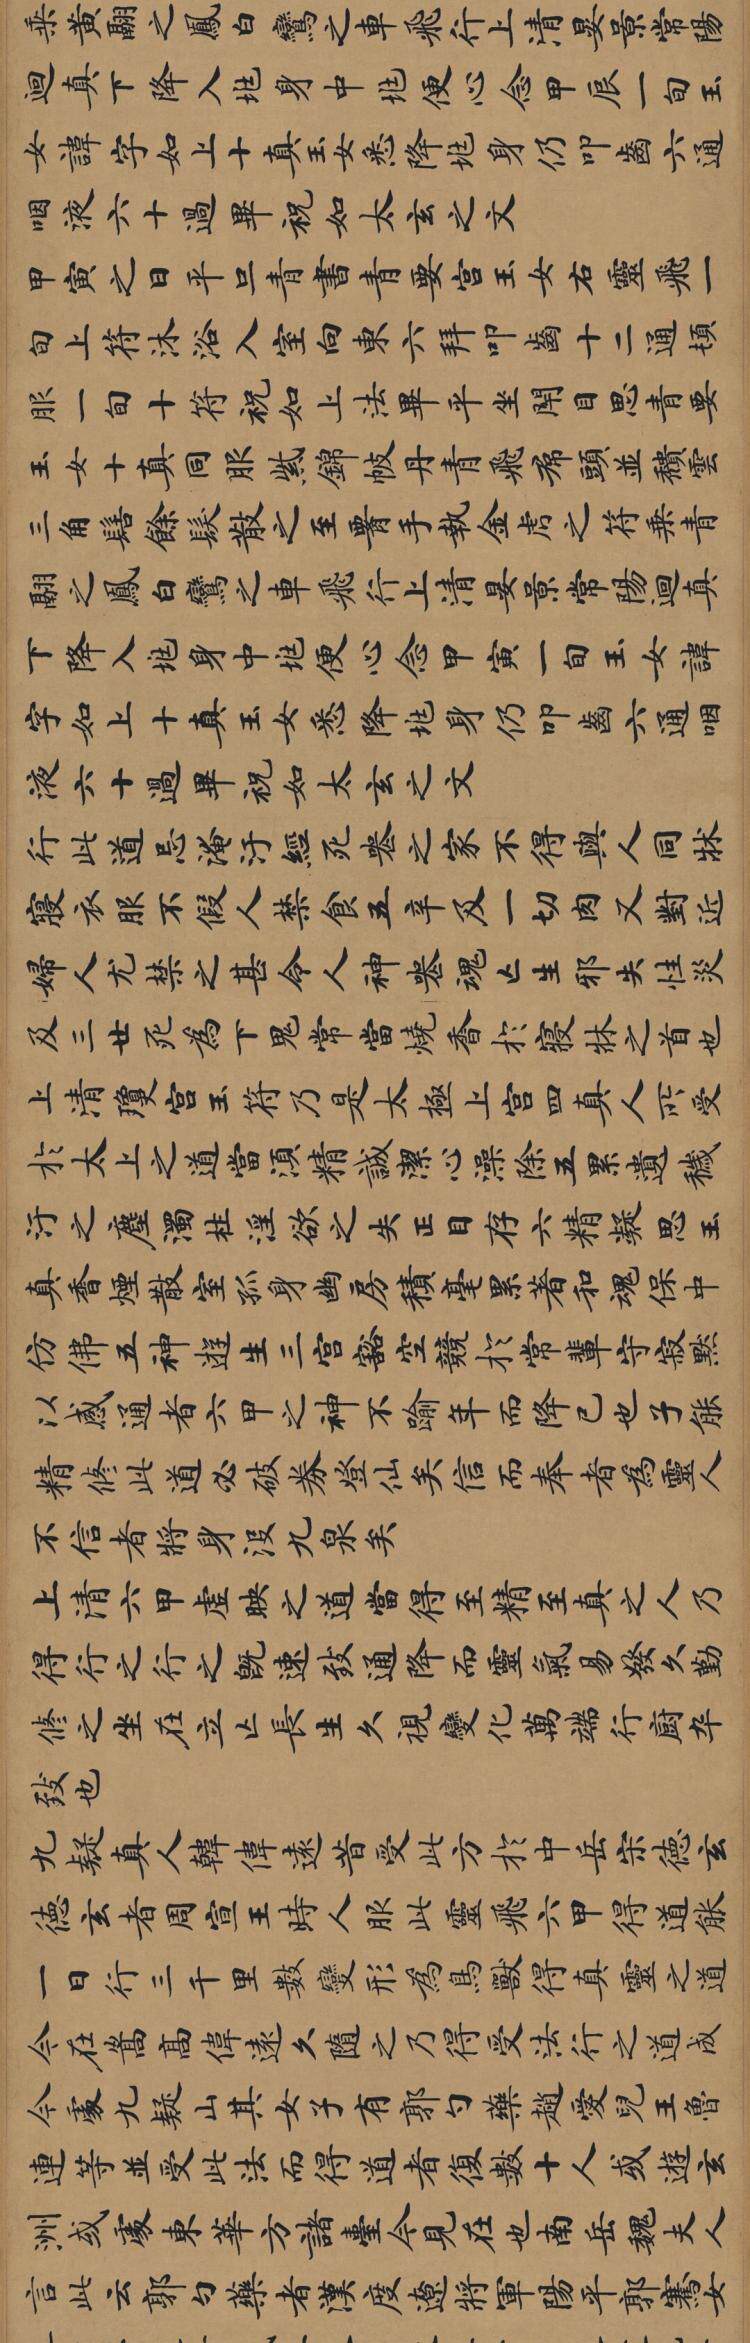 乘黃翮之鳳白鸞之車飛行上清晏景常陽
迴真下降入地身中地便心念甲辰一旬玉
女諱字如上十真玉女悉降地身仍叩齒六通
咽液六十過畢祝如太玄之文
甲寅之日平旦青書青要宮玉女右靈飛一
旬上符沐浴入室向東六拜叩齒十二通頓
服一旬十符祝如上法畢平坐閇目思青要
玉女十真同服紫錦帔丹青飛帬頭並穨雲
三角髻餘髮散之至署手執金虎之符乘青
翮之鳳白鸞之車飛行上清晏景常陽迴真
下降入地身中地便心念甲寅一旬玉女諱
字如上十真玉女悉降地身仍叩齒六通咽
液六十過畢祝如太玄之文
行此道忌淹汙經死喪之家不得與人同牀
寢衣服不假人禁食五辛及一切肉又對近
婦人尤禁之甚令人神喪魂亡生邪失性災
及三世死為下鬼常當燒香於寢牀之首也
上清瓊宮玉符乃是太極上宮四真人所受
於太上之道當須精誠潔心澡除五累遺穢
汙之塵濁杜淫欲之失正目存六精凝思玉
真香煙散室孤身幽房積毫累著和魂保中
仿佛五神遊生三宮豁空競於常輩守寂默
以感通者六甲之神不踰年而降已也子能
精修此道必破券登仙矣信而奉者為靈人
不信者將身沒九泉矣
上清六甲虛映之道當得至精至真之人乃
得行之行之既速致通降而靈氣易發久勤
修之坐在立亡長生久視變化萬端行廚卒
致也
九疑真人韓偉遠昔受此方於中岳宋德玄
德玄者周宣王時人服此靈飛六甲得道能
一日行三千里數變形為鳥獸得真靈之道
今在嵩高偉遠久隨之乃得受法行之道成
今處九疑山其女子有郭勺藥趙愛兒王魯
連等並受此法而得道者復數十人或遊玄
洲或處東華方諸臺今見在也南岳魏夫人
言此云郭勺藥者漢度遼將軍陽平郭騫女